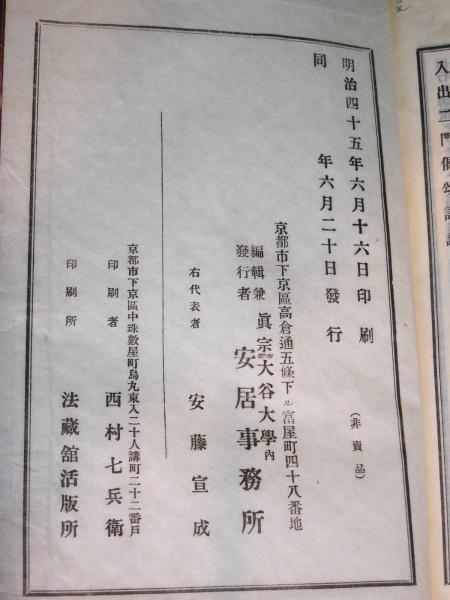 明治四十五年六月十六日印刷
同　年六月二十日發行
（非賣品）
京都市下京區高倉通五條下ル富屋町四十八番地
編輯兼
發行者
眞宗大谷大學內
安居事務所
右代表者　安藤宣成
京都市下京區中珠數屋町烏丸東入二十人講町二十二番戶
印刷者　西村七兵衛
印刷所　法藏館活版所
入出二門偈